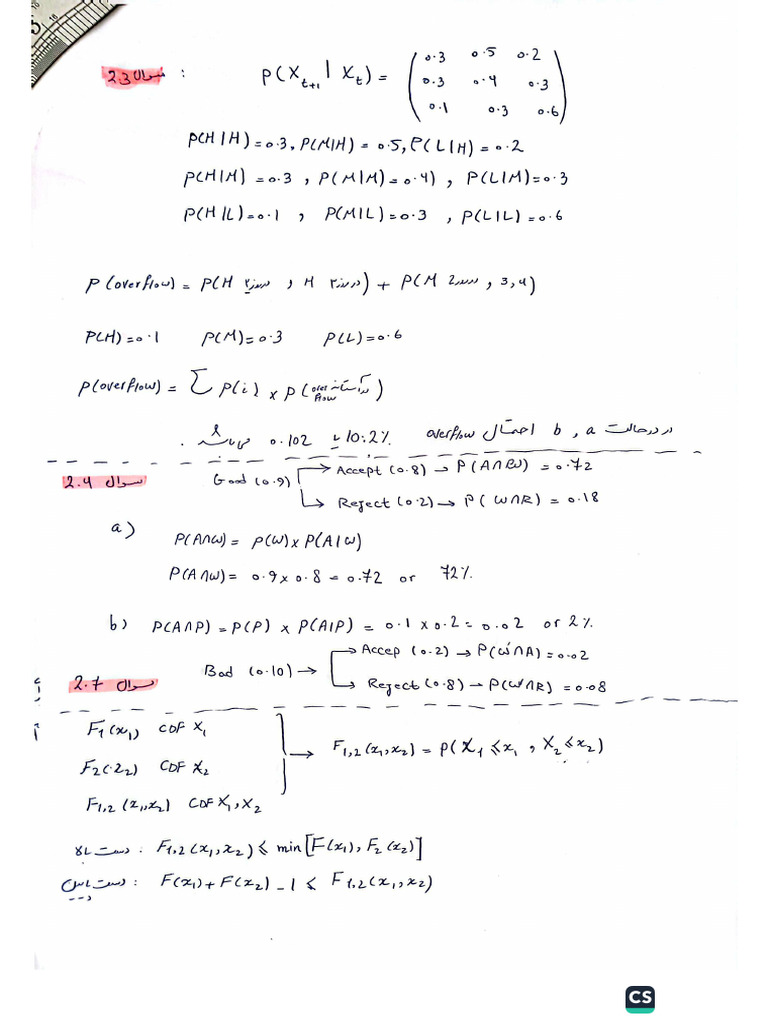 سوال 2.3 : P(X_{t+1} | X_t) = ( 0.3 0.5 0.2
0.3 0.4 0.3
0.1 0.3 0.6 )
P(H|H) = 0.3, P(M|H) = 0.5, P(L|H) = 0.2
P(H|M) = 0.3 , P(M|M) = 0.4) , P(L|M) = 0.3
P(H|L) = 0.1 , P(M|L) = 0.3 , P(L|L) = 0.6
P(overflow) = P(H ۲ , H ۳) + P(M 2 , 3,4)
P(H) = 0.1 P(M) = 0.3 P(L) = 0.6
P(overflow) = Σ P(i) × P(overflow)
در حالت a , b احتمال overflow 10.2% یا 0.102 می باشد .
سوال 2.4
Good (0.9) → Accept (0.8) → P(A∩W) = 0.72
→ Reject (0.2) → P(W∩R) = 0.18
a)
P(A∩W) = P(W) × P(A|W)
P(A∩W) = 0.9 × 0.8 = 0.72 or 72%
b) P(A∩P) = P(P) × P(A|P) = 0.1 × 0.2 = 0.02 or 2%
Bad (0.10) → Accep (0.2) → P(W'∩A) = 0.02
→ Reject (0.8) → P(W'∩R) = 0.08
سوال 2.7
F1(x1) CDF X1
F2(x2) CDF X2
F1,2 (x1,x2) CDF X1, X2
→ F1,2 (x1,x2) = P(X1 ≤ x1 , X2 ≤ x2)
دست بالا : F1,2 (x1, x2) ≤ min[F(x1), F2(x2)]
دست پایین : F(x1) + F(x2) - 1 ≤ F1,2 (x1, x2)
CS